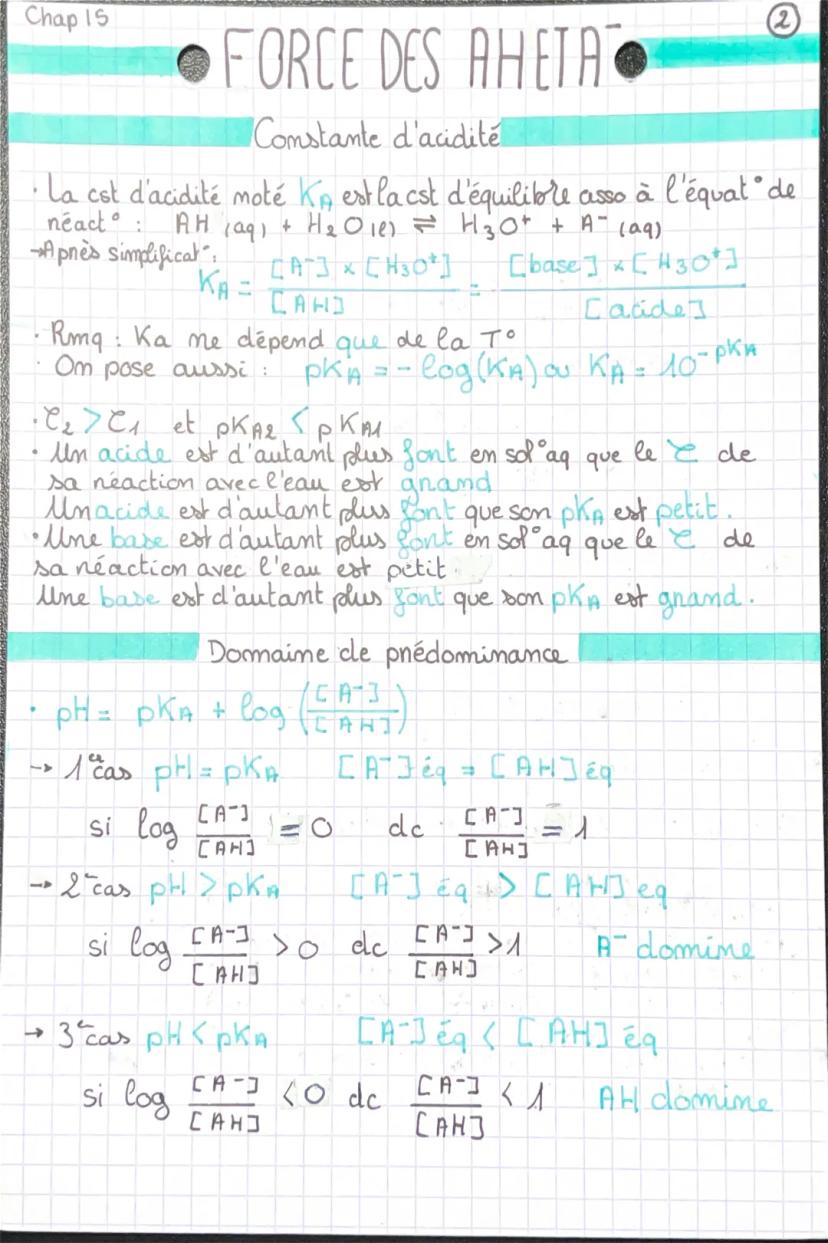 Chap 15
2
FORCE DES AH ET A⁻
Constante d'acidité
· La cst d'acidité noté KA est la cst d'équilibre asso à l'équat° de
réact° : AH (aq) + H2O (l) ⇌ H3O⁺ + A⁻ (aq)
→Après simplificat° :
KA = [A⁻] × [H3O⁺] / [AH] = [base] × [H3O⁺] / [acide]
· Rmq : Ka ne dépend que de la T°
· On pose aussi : pKA = - log(KA) ou KA = 10^-pKA
· τ2 > τ1 et pKA2 < pKA1
· Un acide est d'autant plus fort en sol°aq que le τ de
sa réaction avec l'eau est grand
Un acide est d'autant plus fort que son pKA est petit.
· Une base est d'autant plus fort en sol°aq que le τ de
sa réaction avec l'eau est petit
Une base est d'autant plus fort que son pKA est grand.
Domaine de prédominance
· pH = pKA + log ([A⁻] / [AH])
→ 1er cas pH = pKA [A⁻]éq = [AH]éq
si log [A⁻] / [AH] = 0 dc [A⁻] / [AH] = 1
→ 2e cas pH > pKA [A⁻] éq > [AH] eq
si log [A-] / [AH] > 0 dc [A-] / [AH] > 1 A⁻ domine
→ 3e cas pH < pKA [A-] éq < [AH] éq
si log [A-] / [AH] < 0 dc [A-] / [AH] < 1 AH domine